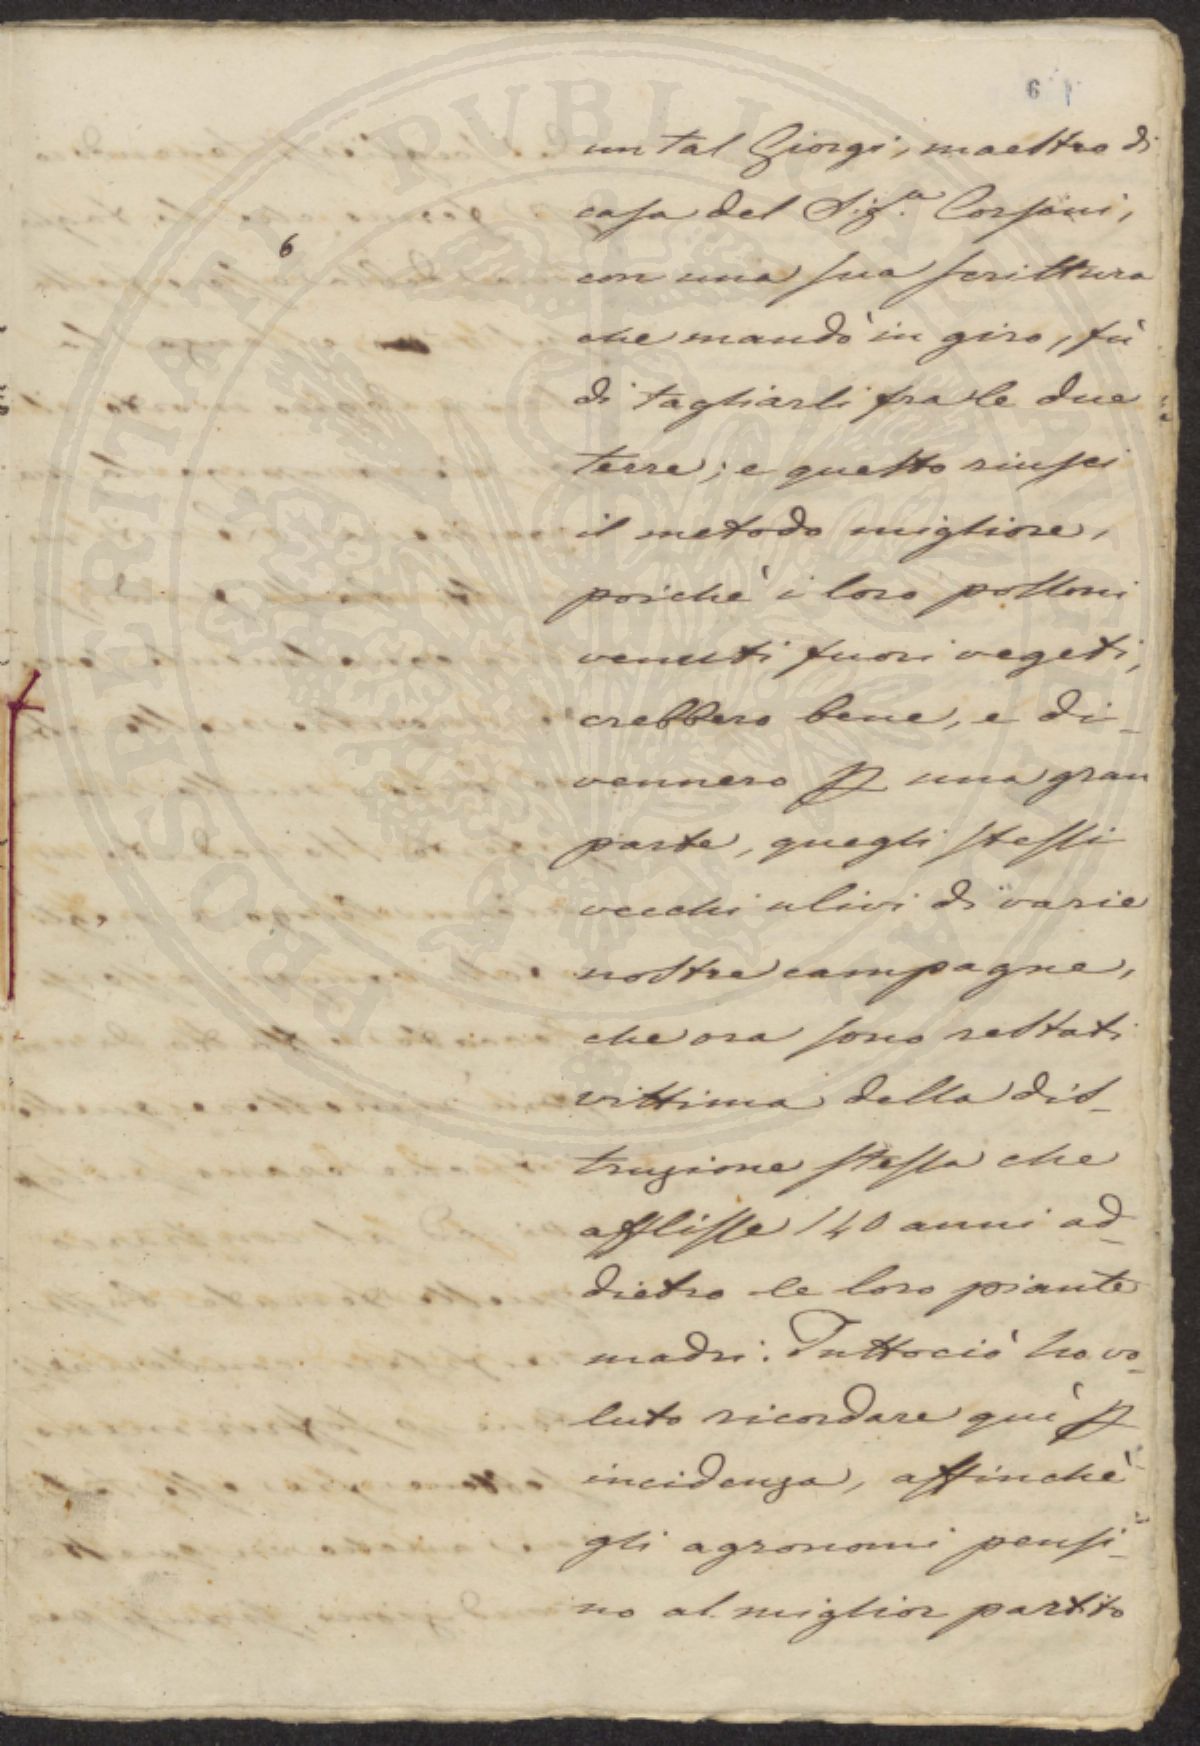 6
6
un tal Giorgi, maestro di
casa del Sig.ʳ Corsini,
con una sua scrittura
che mandò in giro, fù
di tagliarli fra le due
terre; e questo riuscì
il metodo migliore,
poichè i loro polloni
venuti fuori vegeti,
crebbero bene, e di-
vennero p una gran
parte, quegli stessi
vecchi ulivi di varie
nostre campagne,
che ora sono restati
vittima della dis-
truzione stessa che
afflisse 140 anni ad-
dietro le loro piante
madri. Tuttociò ho vo-
luto ricordare quì p
incidenza, affinchè
gli agronomi pensi-
no al miglior partito
PROSPERITATI PVBLICAE